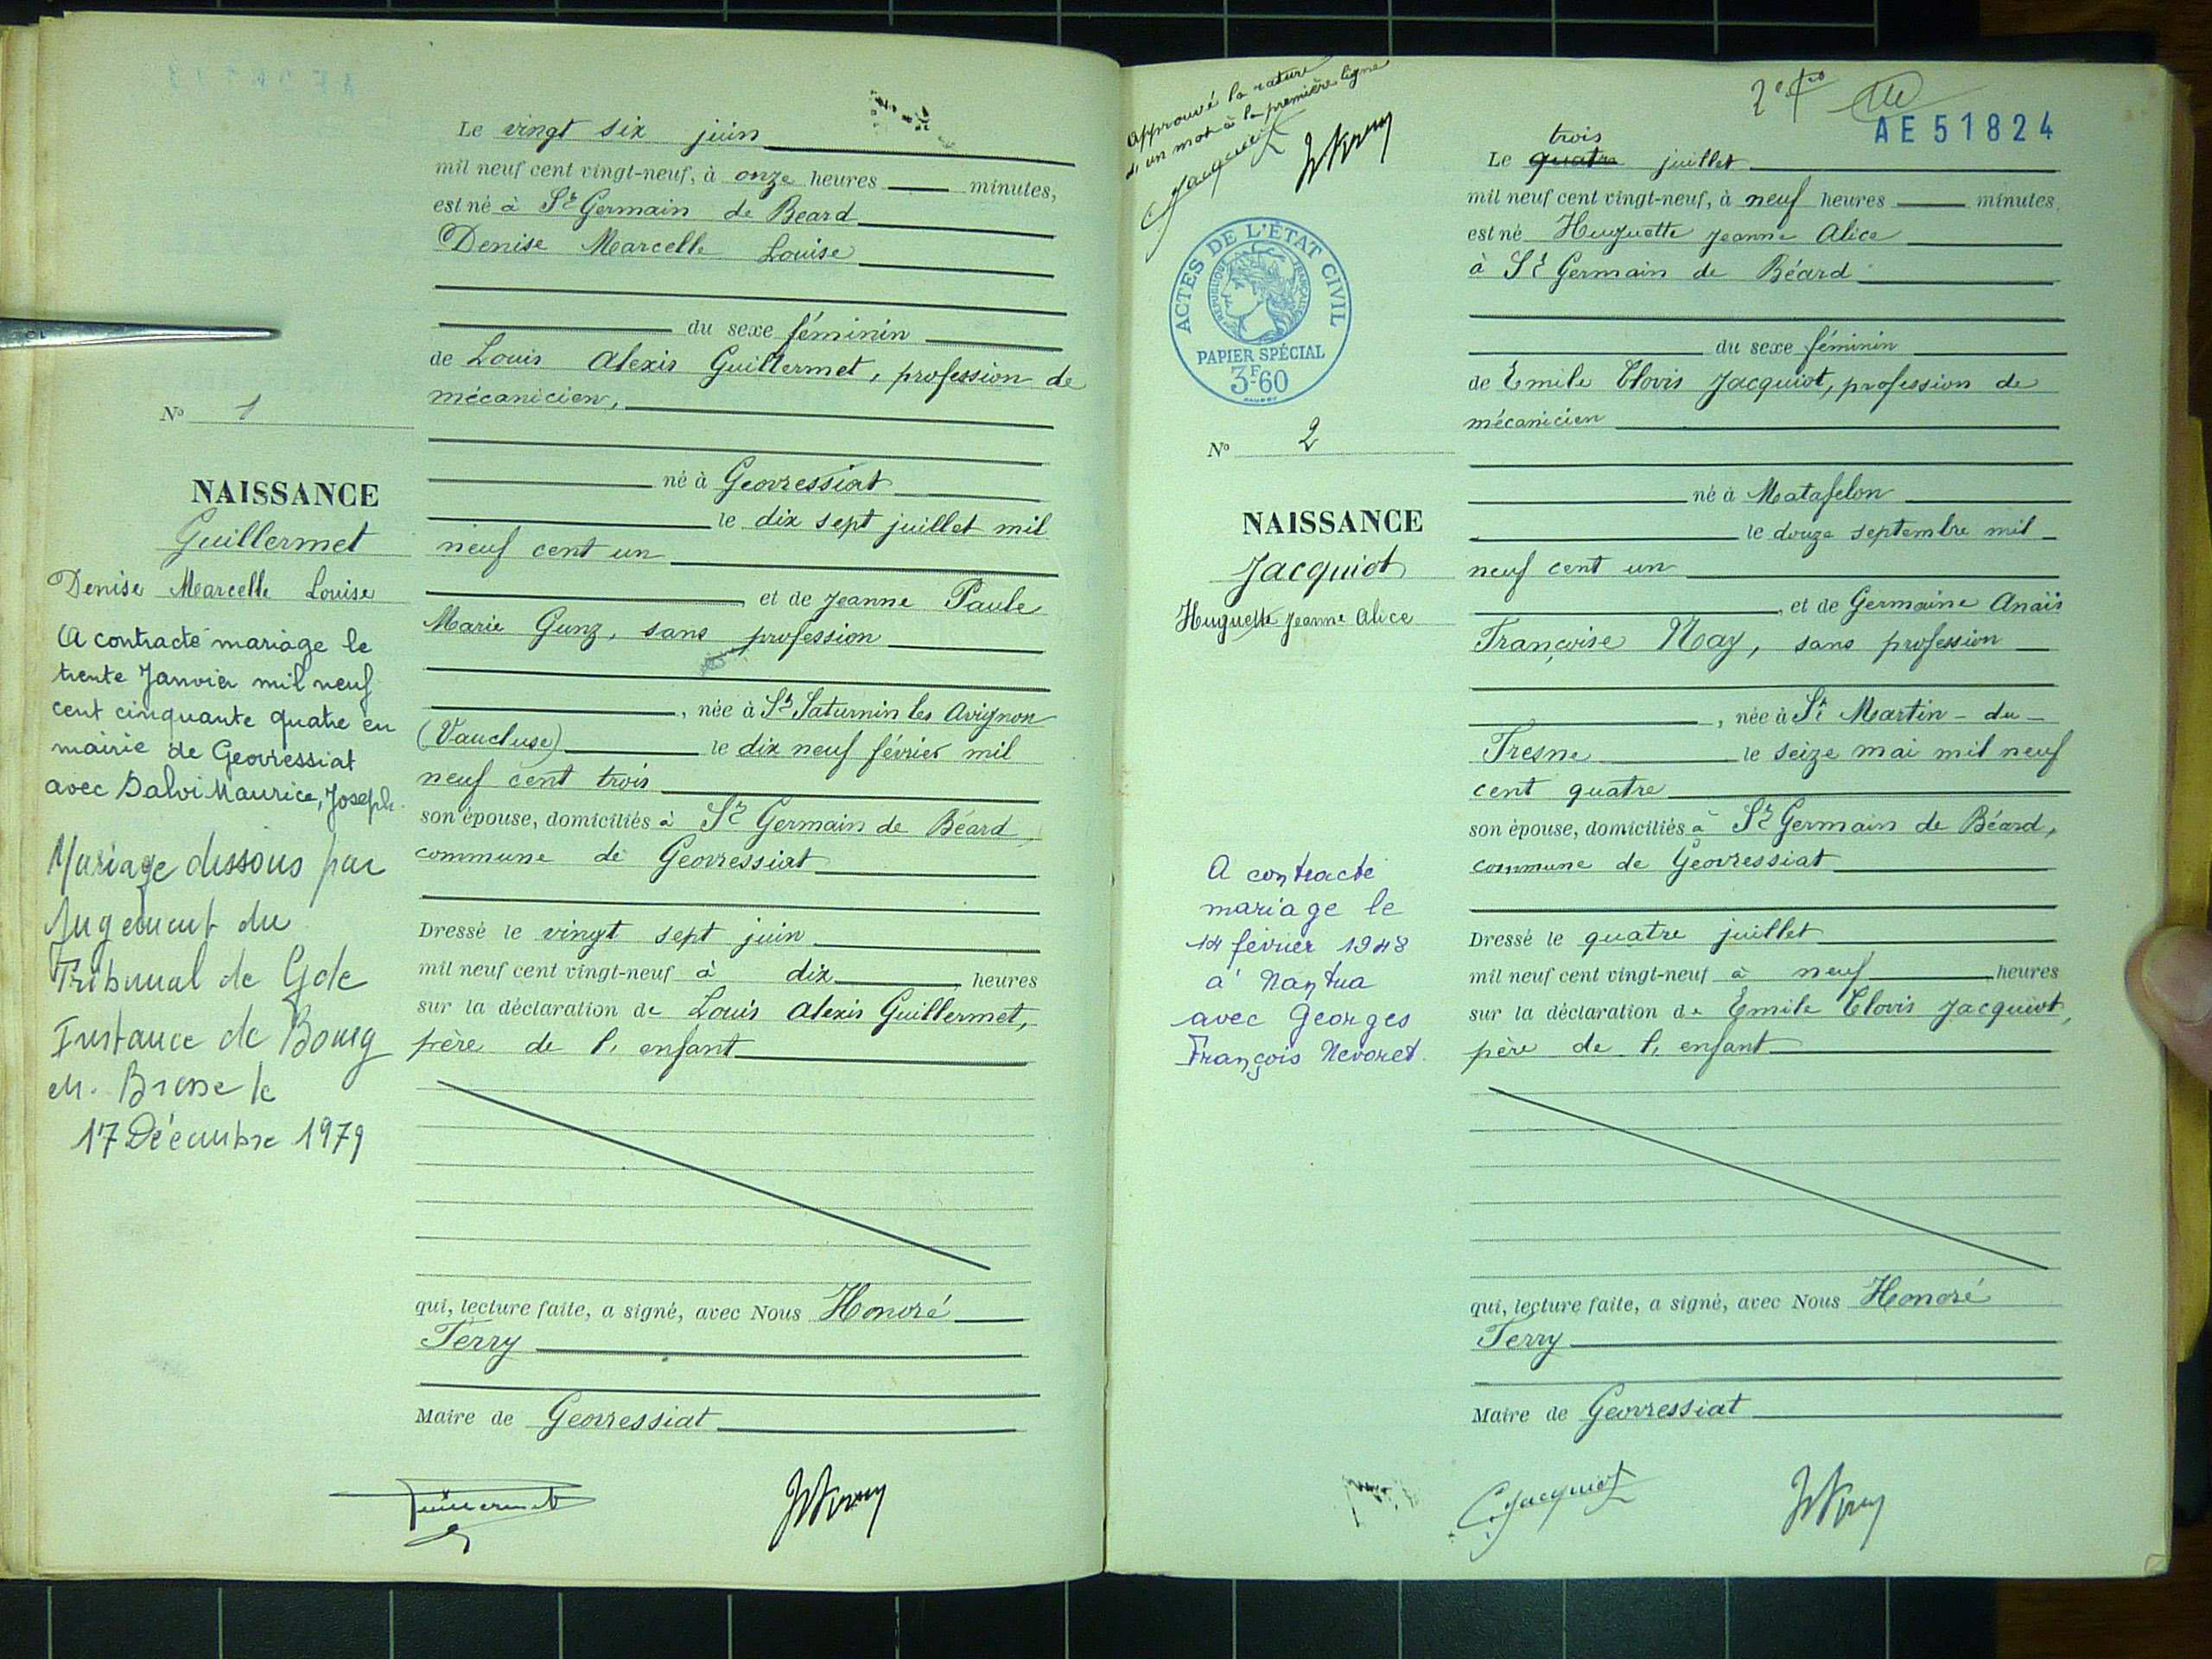 Le vingt six juin
mil neuf cent vingt-neuf, à onze heures minutes,
est né à St Germain de Beard
Denise Marcelle Louise
du sexe féminin
de Louis Alexis Guillermet, profession de
mécanicien,
né à Geovressiat
le dix sept juillet mil
neuf cent un
et de Jeanne Paule
Marie Gunz, sans profession
, née à St Saturnin les Avignon
(Vaucluse) le dix neuf février mil
neuf cent trois
son épouse, domiciliés à St Germain de Béard,
commune de Geovressiat
Dressé le vingt sept juin
mil neuf cent vingt-neuf à dix heures
sur la déclaration de Louis Alexis Guillermet,
père de l'enfant
qui, lecture faite, a signé, avec Nous Honoré
Ferry
Maire de Geovressiat
Guillermet
No 1
NAISSANCE
Guillermet
Denise Marcelle Louise
A contracté mariage le
trente Janvier mil neuf
cent cinquante quatre en
mairie de Geovressiat
avec Dalvi Maurice, Joseph.
Mariage dissous par
Jugement du
Tribunal de Gde
Instance de Bourg
en Bresse le
17 Décembre 1979
Approuvé la rature
d'un mot à la première ligne
Jacquiot
ACTES DE L'ÉTAT CIVIL
RÉPUBLIQUE FRANÇAISE
PAPIER SPÉCIAL
3F60
No 2
NAISSANCE
Jacquiot
Huguette Jeanne Alice
A contracté
mariage le
14 février 1948
à Nantua
avec Georges
François Nevoret.
AE 51824
trois
Le quatre juillet
mil neuf cent vingt-neuf, à neuf heures minutes,
est né Huguette Jeanne Alice
à St Germain de Béard
du sexe féminin
de Emile Clovis Jacquiot, profession de
mécanicien
né à Matafelon
le douze septembre mil
neuf cent un
, et de Germaine Anaïs
Françoise Nay, sans profession
, née à St Martin-du-
Fresne le seize mai mil neuf
cent quatre
son épouse, domiciliés à St Germain de Béard,
commune de Géovressiat
Dressé le quatre juillet
mil neuf cent vingt-neuf à neuf heures
sur la déclaration de Emile Clovis Jacquiot,
père de l'enfant
qui, lecture faite, a signé, avec Nous Honoré
Ferry
Maire de Geovressiat
C. Jacquiot